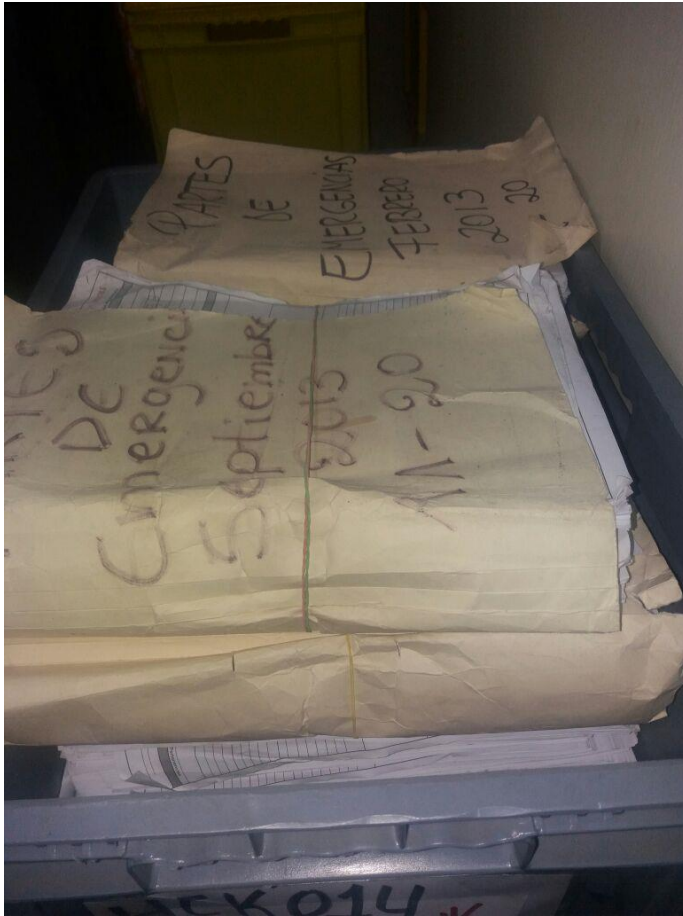 PARTES
DE
EMERGENCIAS
FEBRERO
2013
DE
Emergenci
Septiembre
2013
11-20